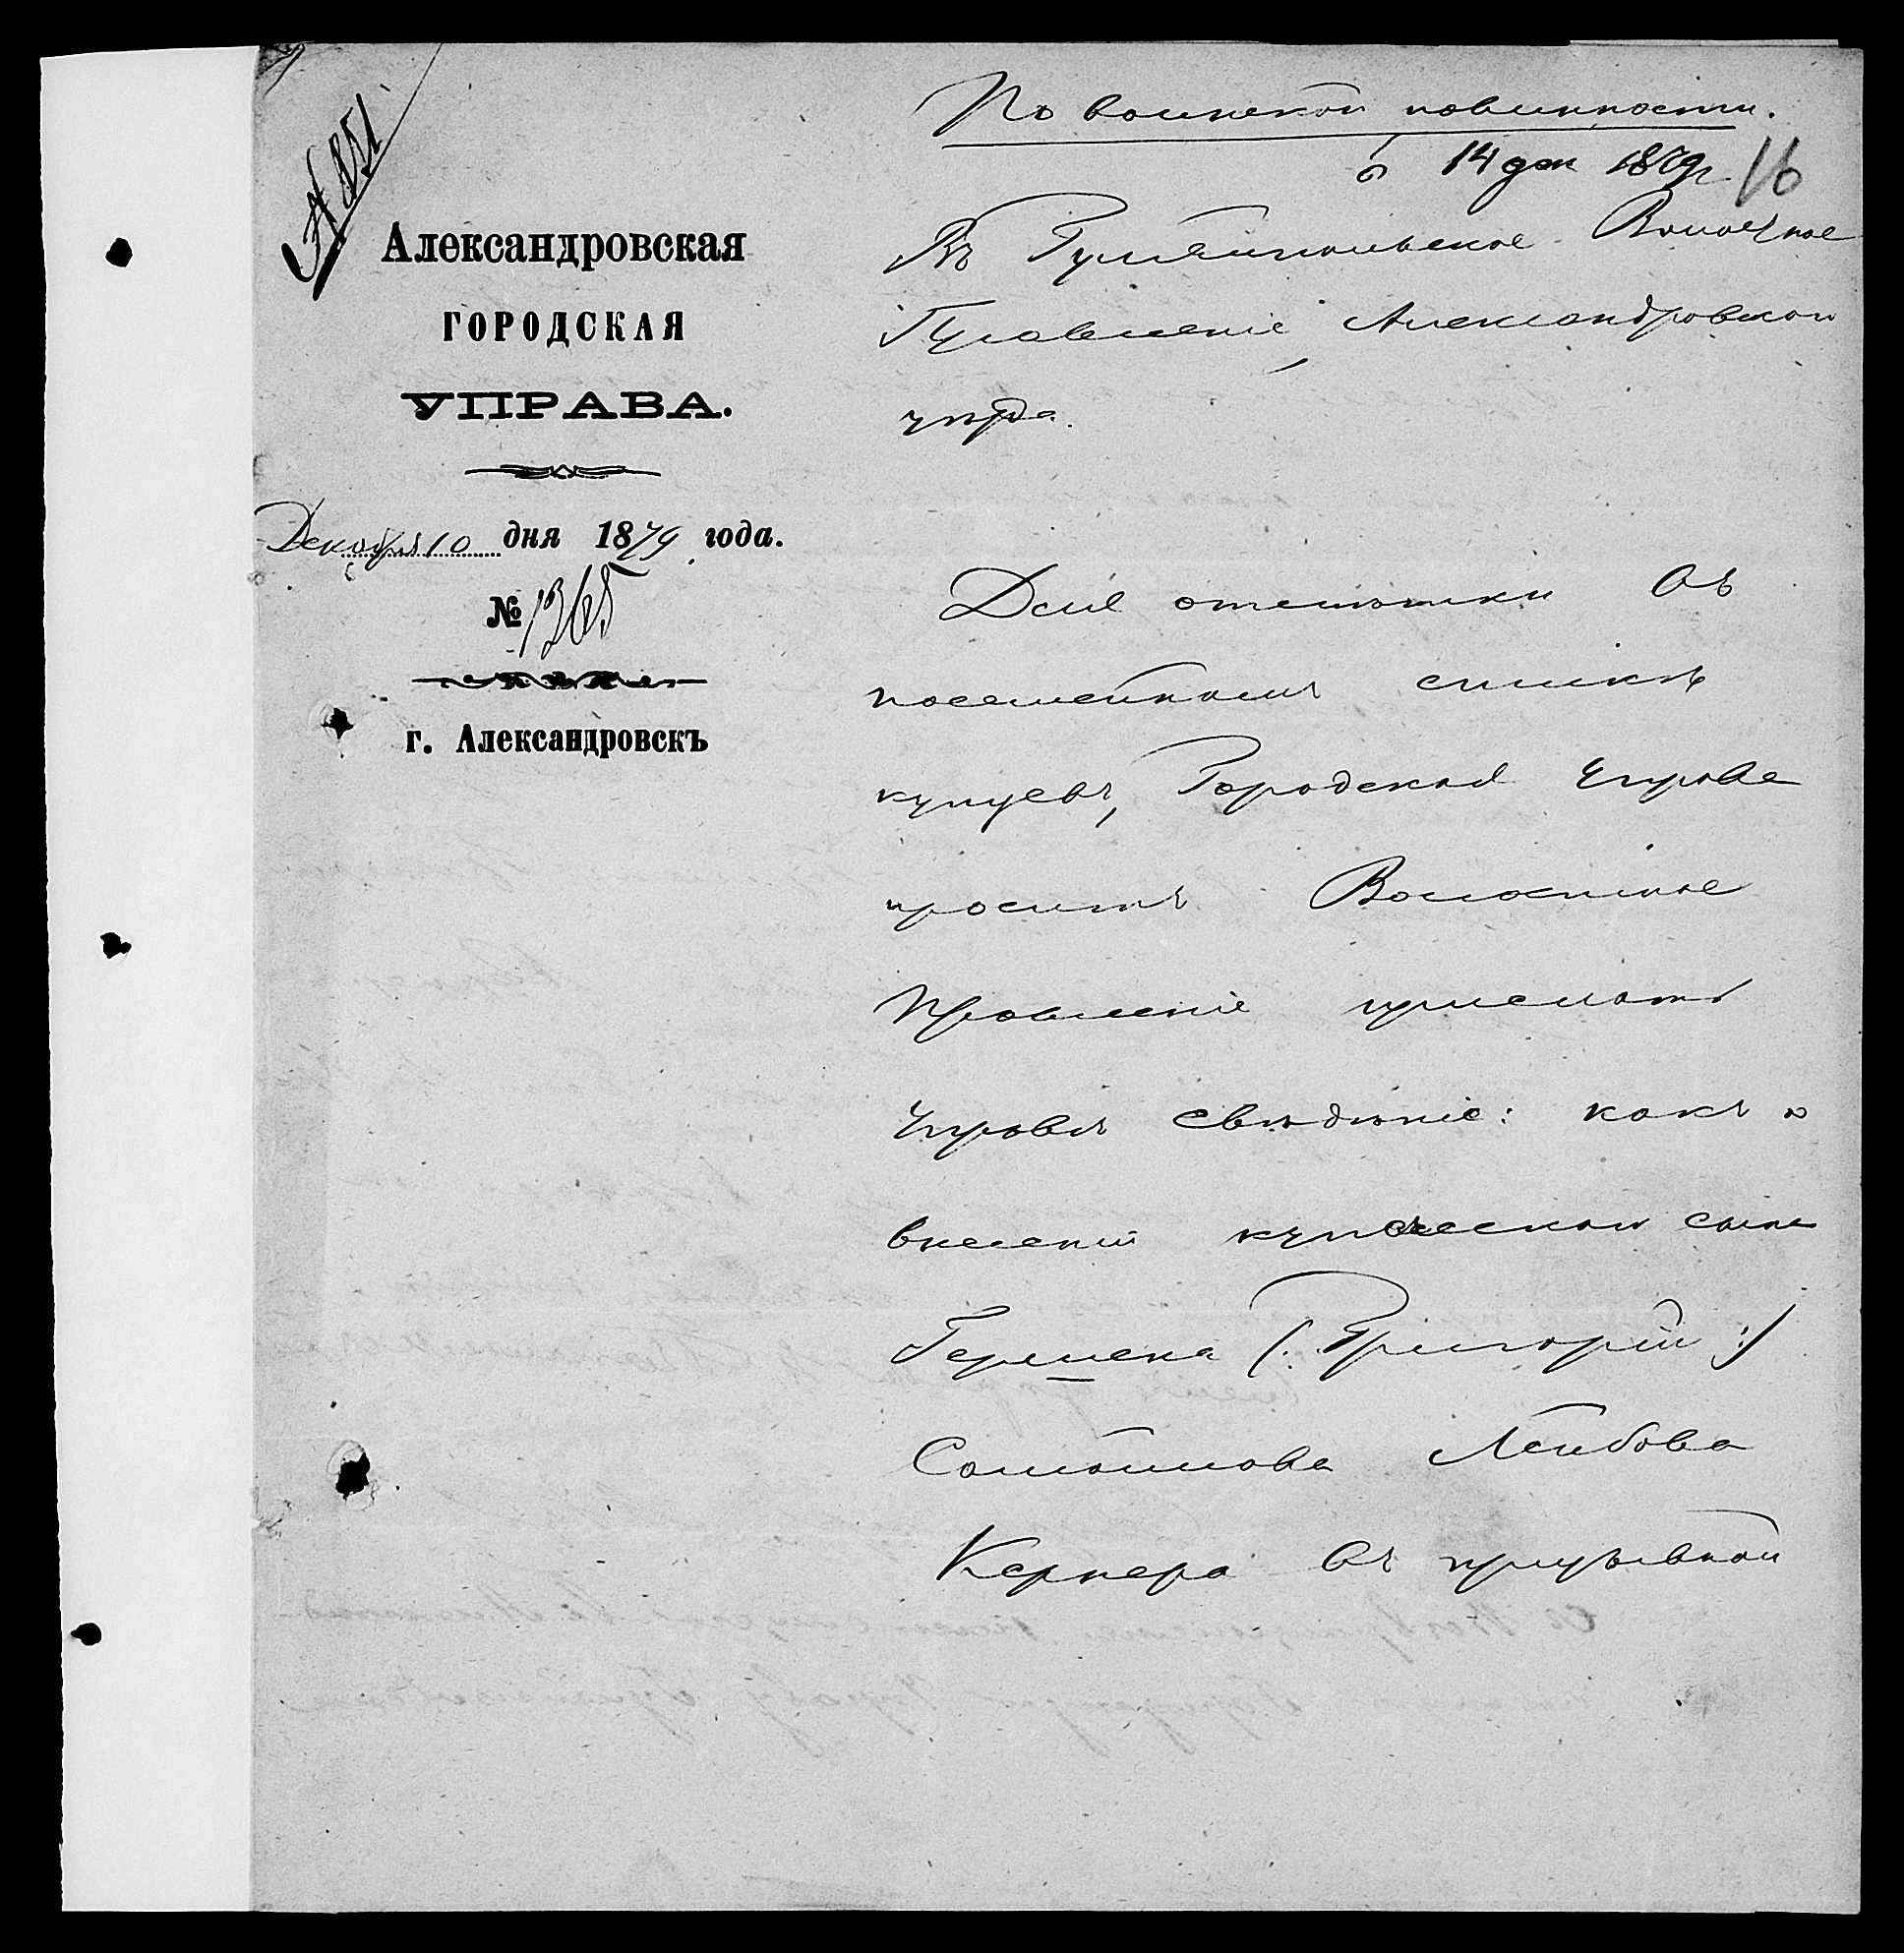 № 851
Александровская
ГОРОДСКАЯ
УПРАВА.
Декабря 10 дня 1879 года.
№ 1365
г. Александровскъ
По воинской повинности.
14 дек 1879 г
16
Въ Гуляйпольское Волостное
Правленіе, Александровскаго
уѣзда.
Для отмѣтки въ
посемейномъ спискѣ
купцевъ, Городская Управа
проситъ Волостное
Правленіе прислать
Управѣ свѣдѣніе: какъ о
внесеніи купеческаго сына
Гершена (: Григорій :)
Соломонова Лейбова
Кернера въ призывной